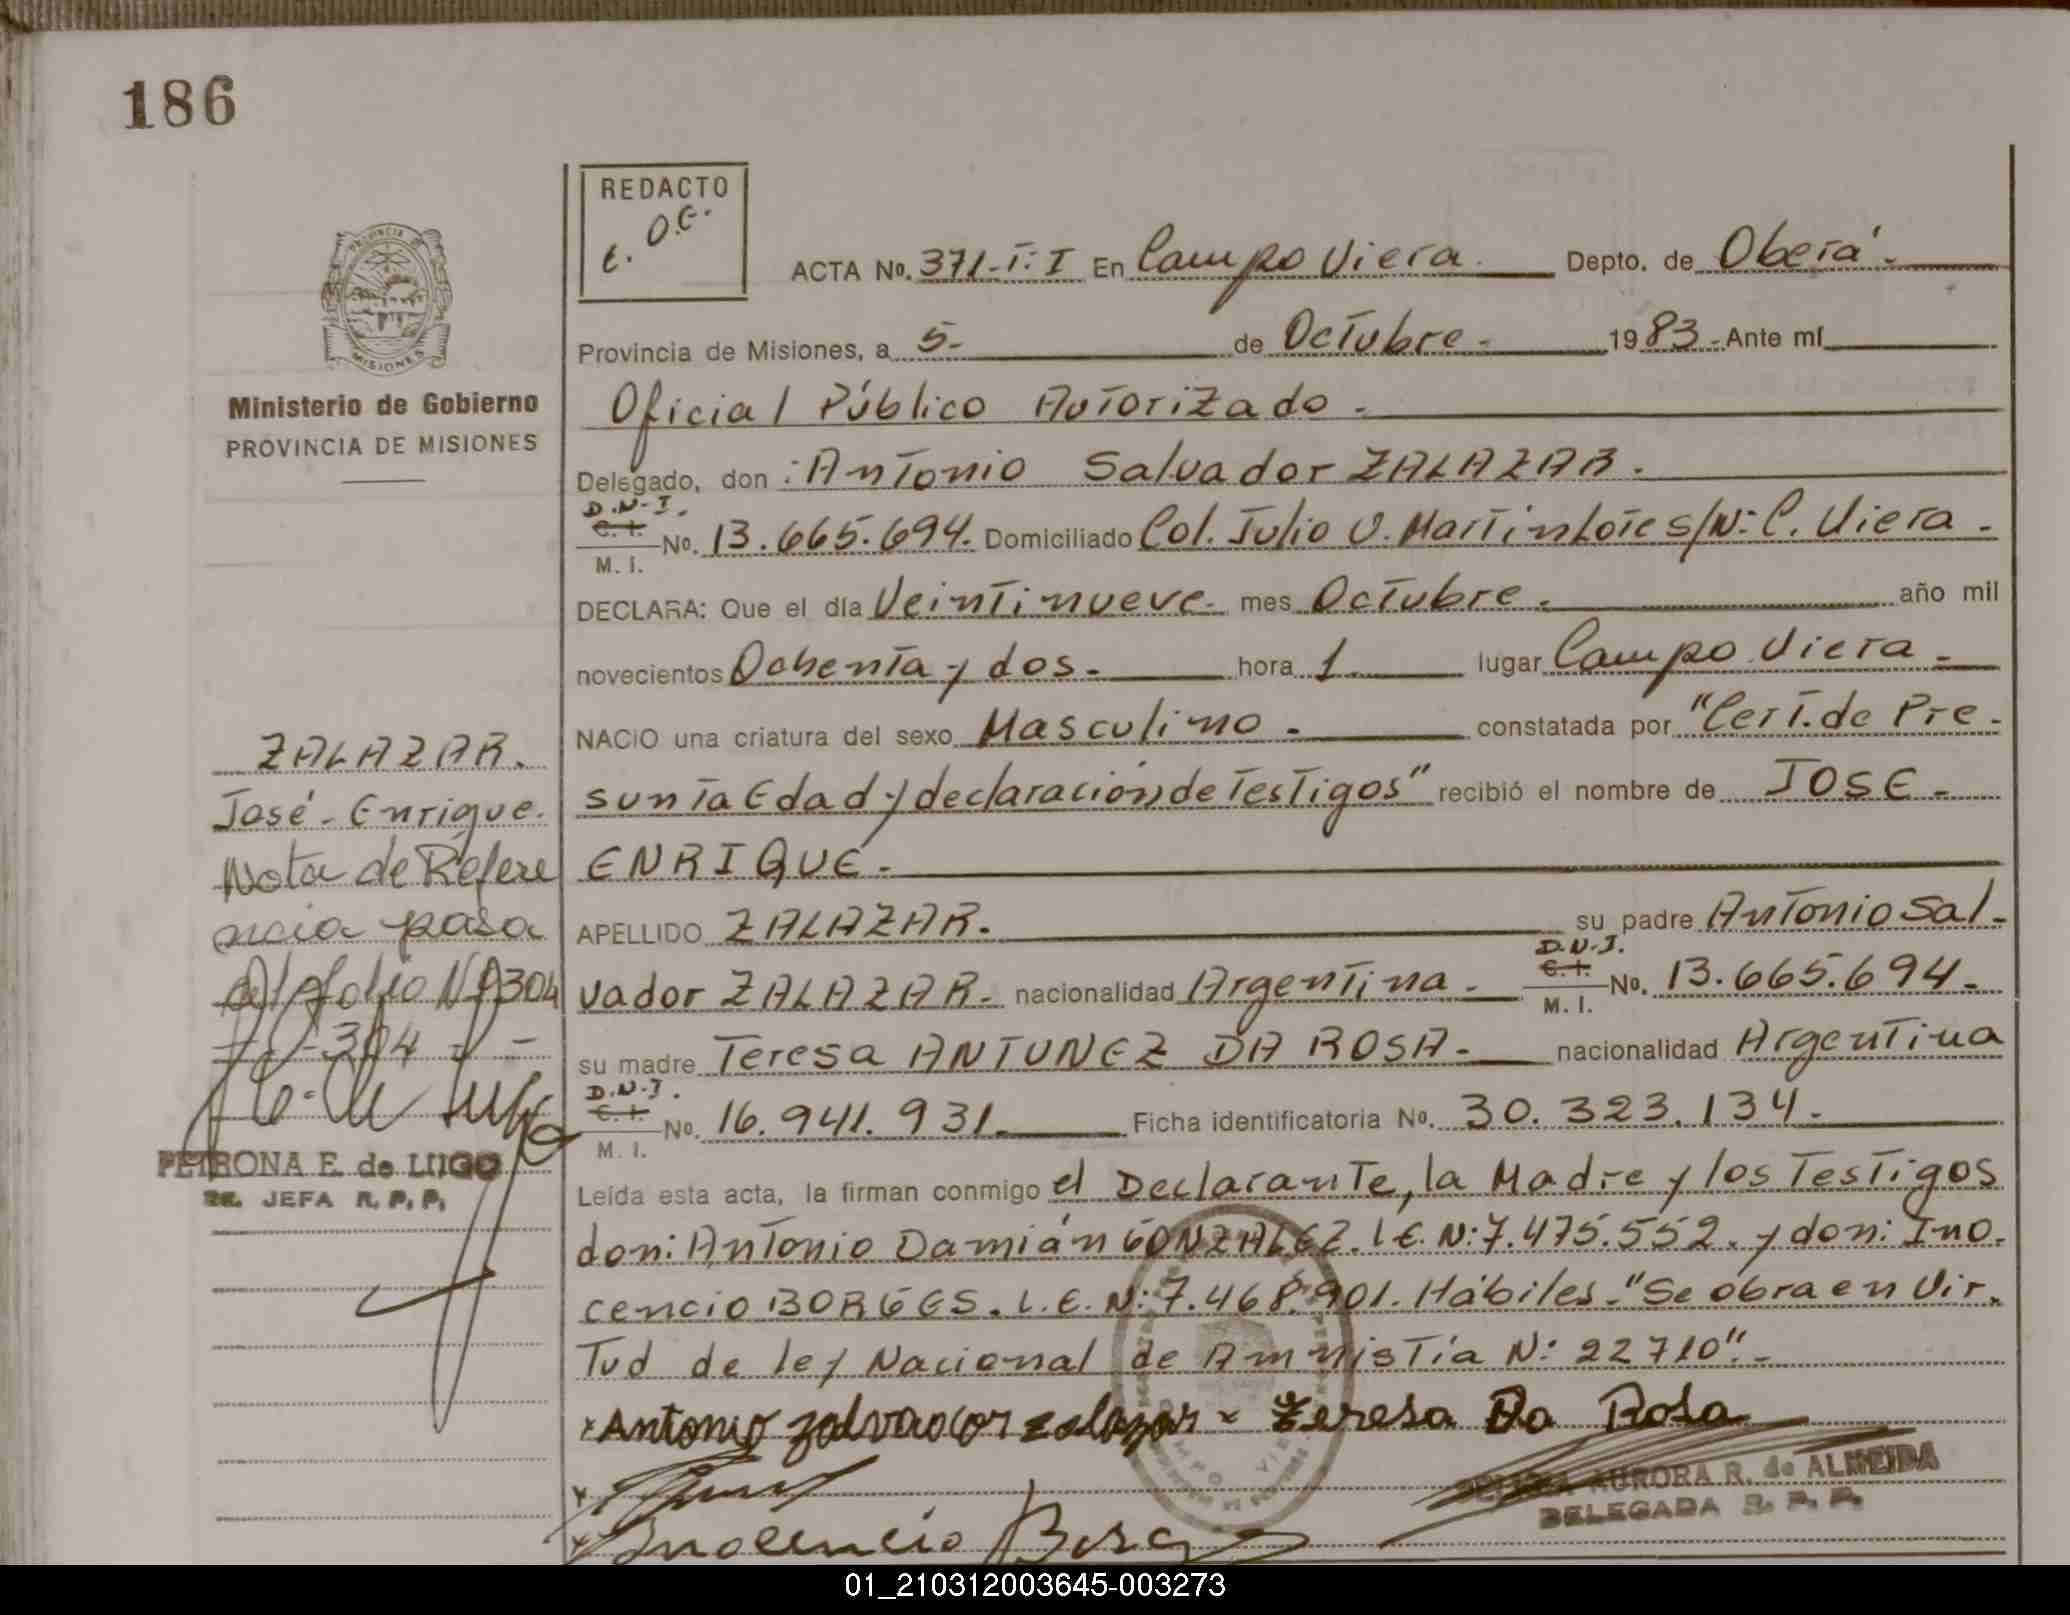 186
REDACTO
ACTA No. 371-T:I En Campo Viera. Depto. de Oberá.-
PROVINCIA DE
MISIONES
Provincia de Misiones, a 5.- de Octubre.- 1983.- Ante mí
Ministerio de Gobierno
PROVINCIA DE MISIONES
Oficial Público Autorizado.-
Delegado, don: Antonio Salvador ZALAZAR.
D.N.I.
C.I.
M. I.
No. 13.665.694. Domiciliado Col. Julio U. Martin Lote s/N: C. Viera.-
DECLARA: Que el día Veintinueve.- mes Octubre.- año mil
novecientos Ochenta y dos.- hora 1. lugar Campo Viera.-
NACIO una criatura del sexo Masculino.- constatada por "Cert. de Pre-
sunta Edad y declaración de Testigos" recibió el nombre de JOSE-
ENRIQUE.-
APELLIDO ZALAZAR.- su padre Antonio Sal-
vador ZALAZAR.- nacionalidad Argentina.-
D.N.I.
C.I.
M. I.
No. 13.665.694.-
su madre Teresa ANTUNEZ DA ROSA.- nacionalidad Argentina
D.N.I.
C.I.
M. I.
No. 16.941.931.- Ficha identificatoria No. 30.323.134.-
Leída esta acta, la firman conmigo el Declarante, la Madre y los Testigos
don: Antonio Damián GONZALEZ. L.E. N: 7.475.552. y don: Ino-
cencio BORGES. L.E. N: 7.468.901. Hábiles.- "Se obra en Vir-
tud de ley Nacional de Amnistía N: 22710".-
x Antonio Zalvador Zalazar x Teresa Da Rosa
AURORA R. de ALMEIDA
DELEGADA R. P. P.
x Inocencio Borges
ZALAZAR.
José - Enrique.
Nota de Refere
ncia pasa
al folio Nº 304
- 304 -
PETRONA E. de LUGO
JEFA R. P. P.
01_210312003645-003273